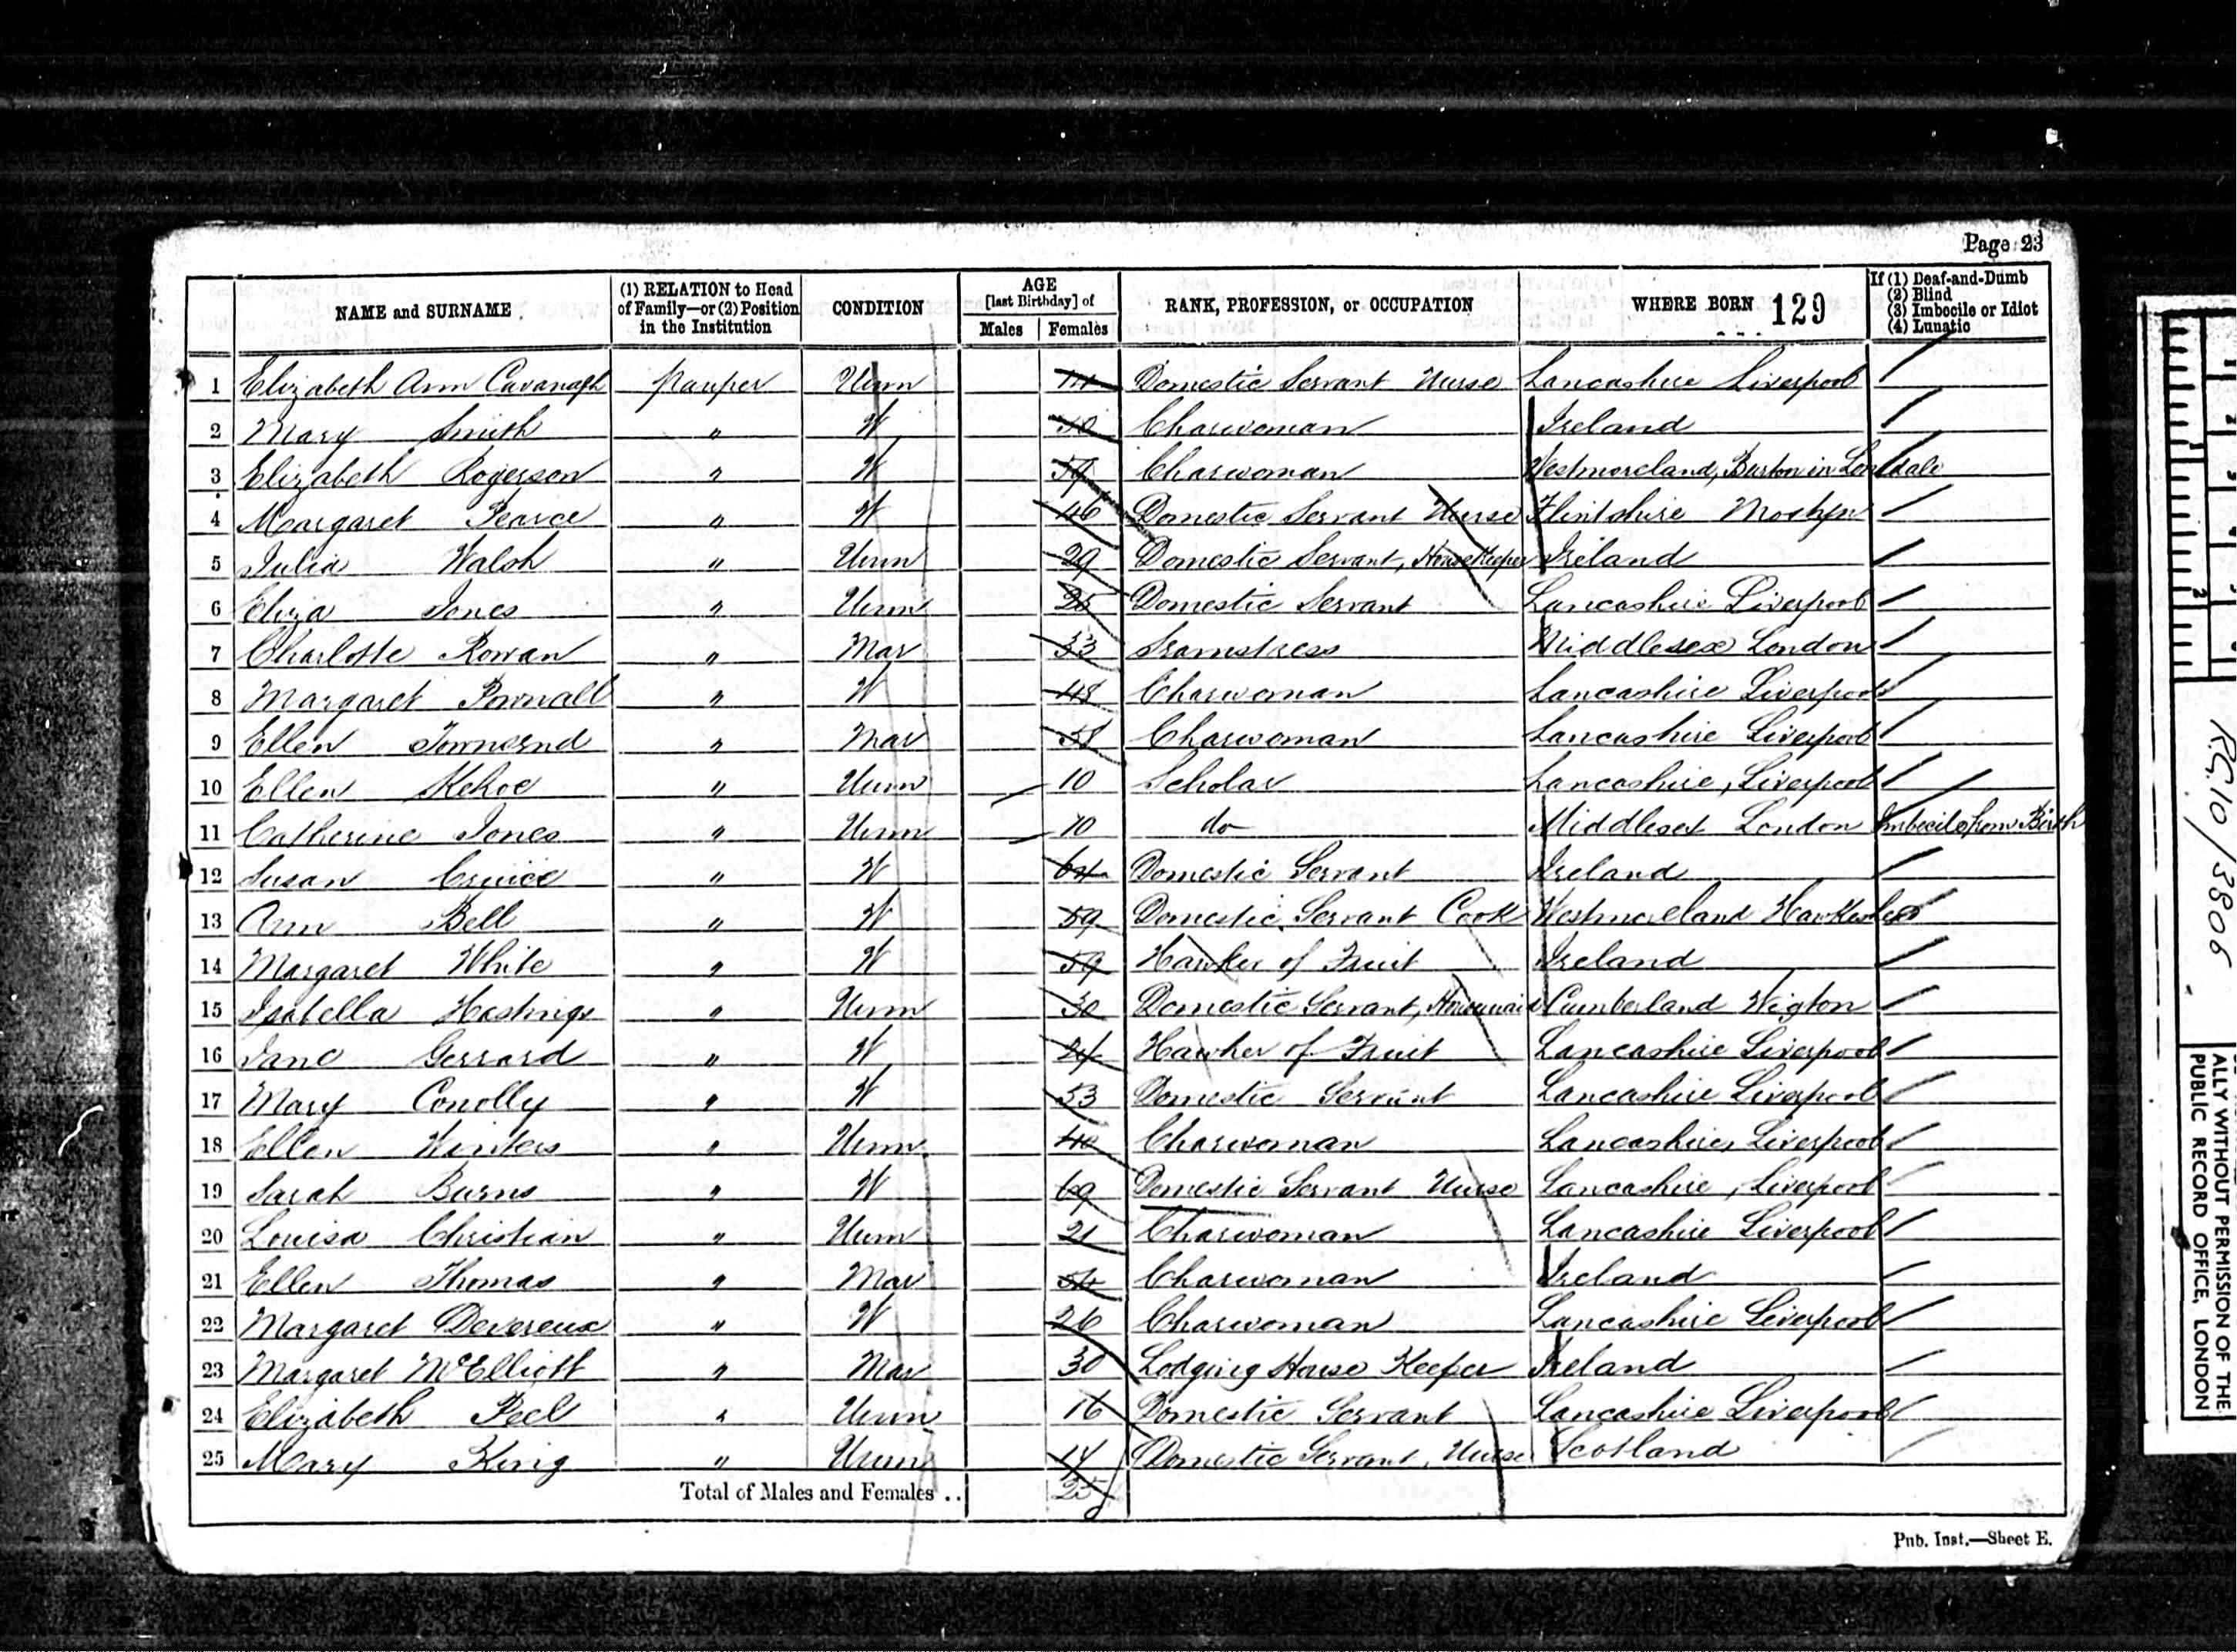 Page 23
NAME and SURNAME (1) RELATION to Head of Family—or (2) Position in the Institution CONDITION AGE [last Birthday] of Males Females RANK, PROFESSION, or OCCUPATION WHERE BORN 129 If (1) Deaf-and-Dumb (2) Blind (3) Imbecile or Idiot (4) Lunatic
1 Elizabeth Ann Cavanagh Pauper Unm Domestic Servant Nurse Lancashire Liverpool
2 Mary Smith " W 50 Charwoman Ireland
3 Elizabeth Rogerson " W Charwoman Westmoreland, Burton in Lonsdale
4 Margaret Pearce " W 46 Domestic Servant Nurse Flintshire Mostyn
5 Julia Walsh " Unm 29 Domestic Servant, HouseKeeper Ireland
6 Eliza Jones " Unm 25 Domestic Servant Lancashire Liverpool
7 Charlotte Rowan " Mar 33 Seamstress Middlesex London
8 Margaret Pownall " W 48 Charwoman Lancashire Liverpool
9 Ellen Townsend " Mar 58 Charwoman Lancashire Liverpool
10 Ellen Kehoe " Unm 10 Scholar Lancashire, Liverpool
11 Catherine Jones " Unm 10 do Middlesex London Imbecile from Birth
12 Susan " W 64 Domestic Servant Ireland
13 Ann Bell " W 59 Domestic Servant Cook Westmoreland
14 Margaret White " W 59 Hawker of Fruit Ireland
15 Isabella Hastings " Unm 30 Domestic Servant, Housemaid Cumberland Wigton
16 Jane Gerrard " W Hawker of Fruit Lancashire Liverpool
17 Mary Conolly " W 53 Domestic Servant Lancashire Liverpool
18 Ellen Winters " Unm 40 Charwoman Lancashire, Liverpool
19 Sarah Burns " W 69 Domestic Servant Nurse Lancashire, Liverpool
20 Louisa Christian " Unm 21 Charwoman Lancashire Liverpool
21 Ellen Thomas " Mar 54 Charwoman Ireland
22 Margaret Devereux " W 26 Charwoman Lancashire Liverpool
23 Margaret McElliott " Mar 30 Lodging House Keeper Ireland
24 Elizabeth Peel " Unm 16 Domestic Servant Lancashire Liverpool
25 Mary King " Unm 14 Domestic Servant, Nurse Scotland
Total of Males and Females .. 25
Pub. Inst.—Sheet E.
R.G.10/3806
ALLY WITHOUT PERMISSION OF THE
PUBLIC RECORD OFFICE, LONDON